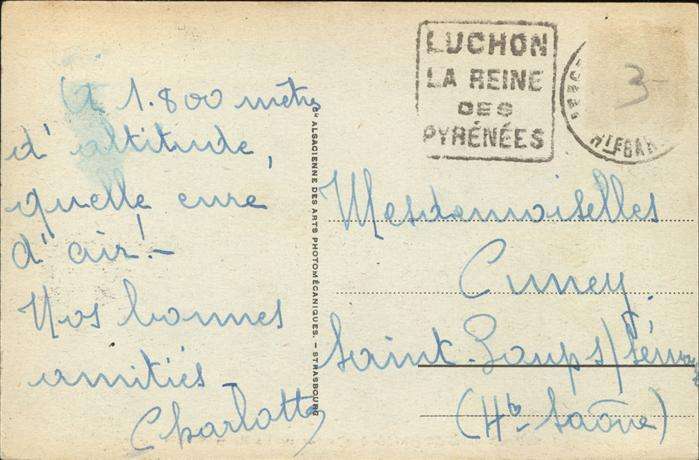 LUCHON
LA REINE
DES
PYRÉNÉES
Hte GAR
3-
A 1.800 mètres
d'altitude,
quelle cure
d'air! -
Nos bonnes
amitiés
Charlotte
Cie ALSACIENNE DES ARTS PHOTOMÉCANIQUES. - STRASBOURG
Mesdemoiselles
Cuney.
Saint-Loup s/
(Hte-Saône)